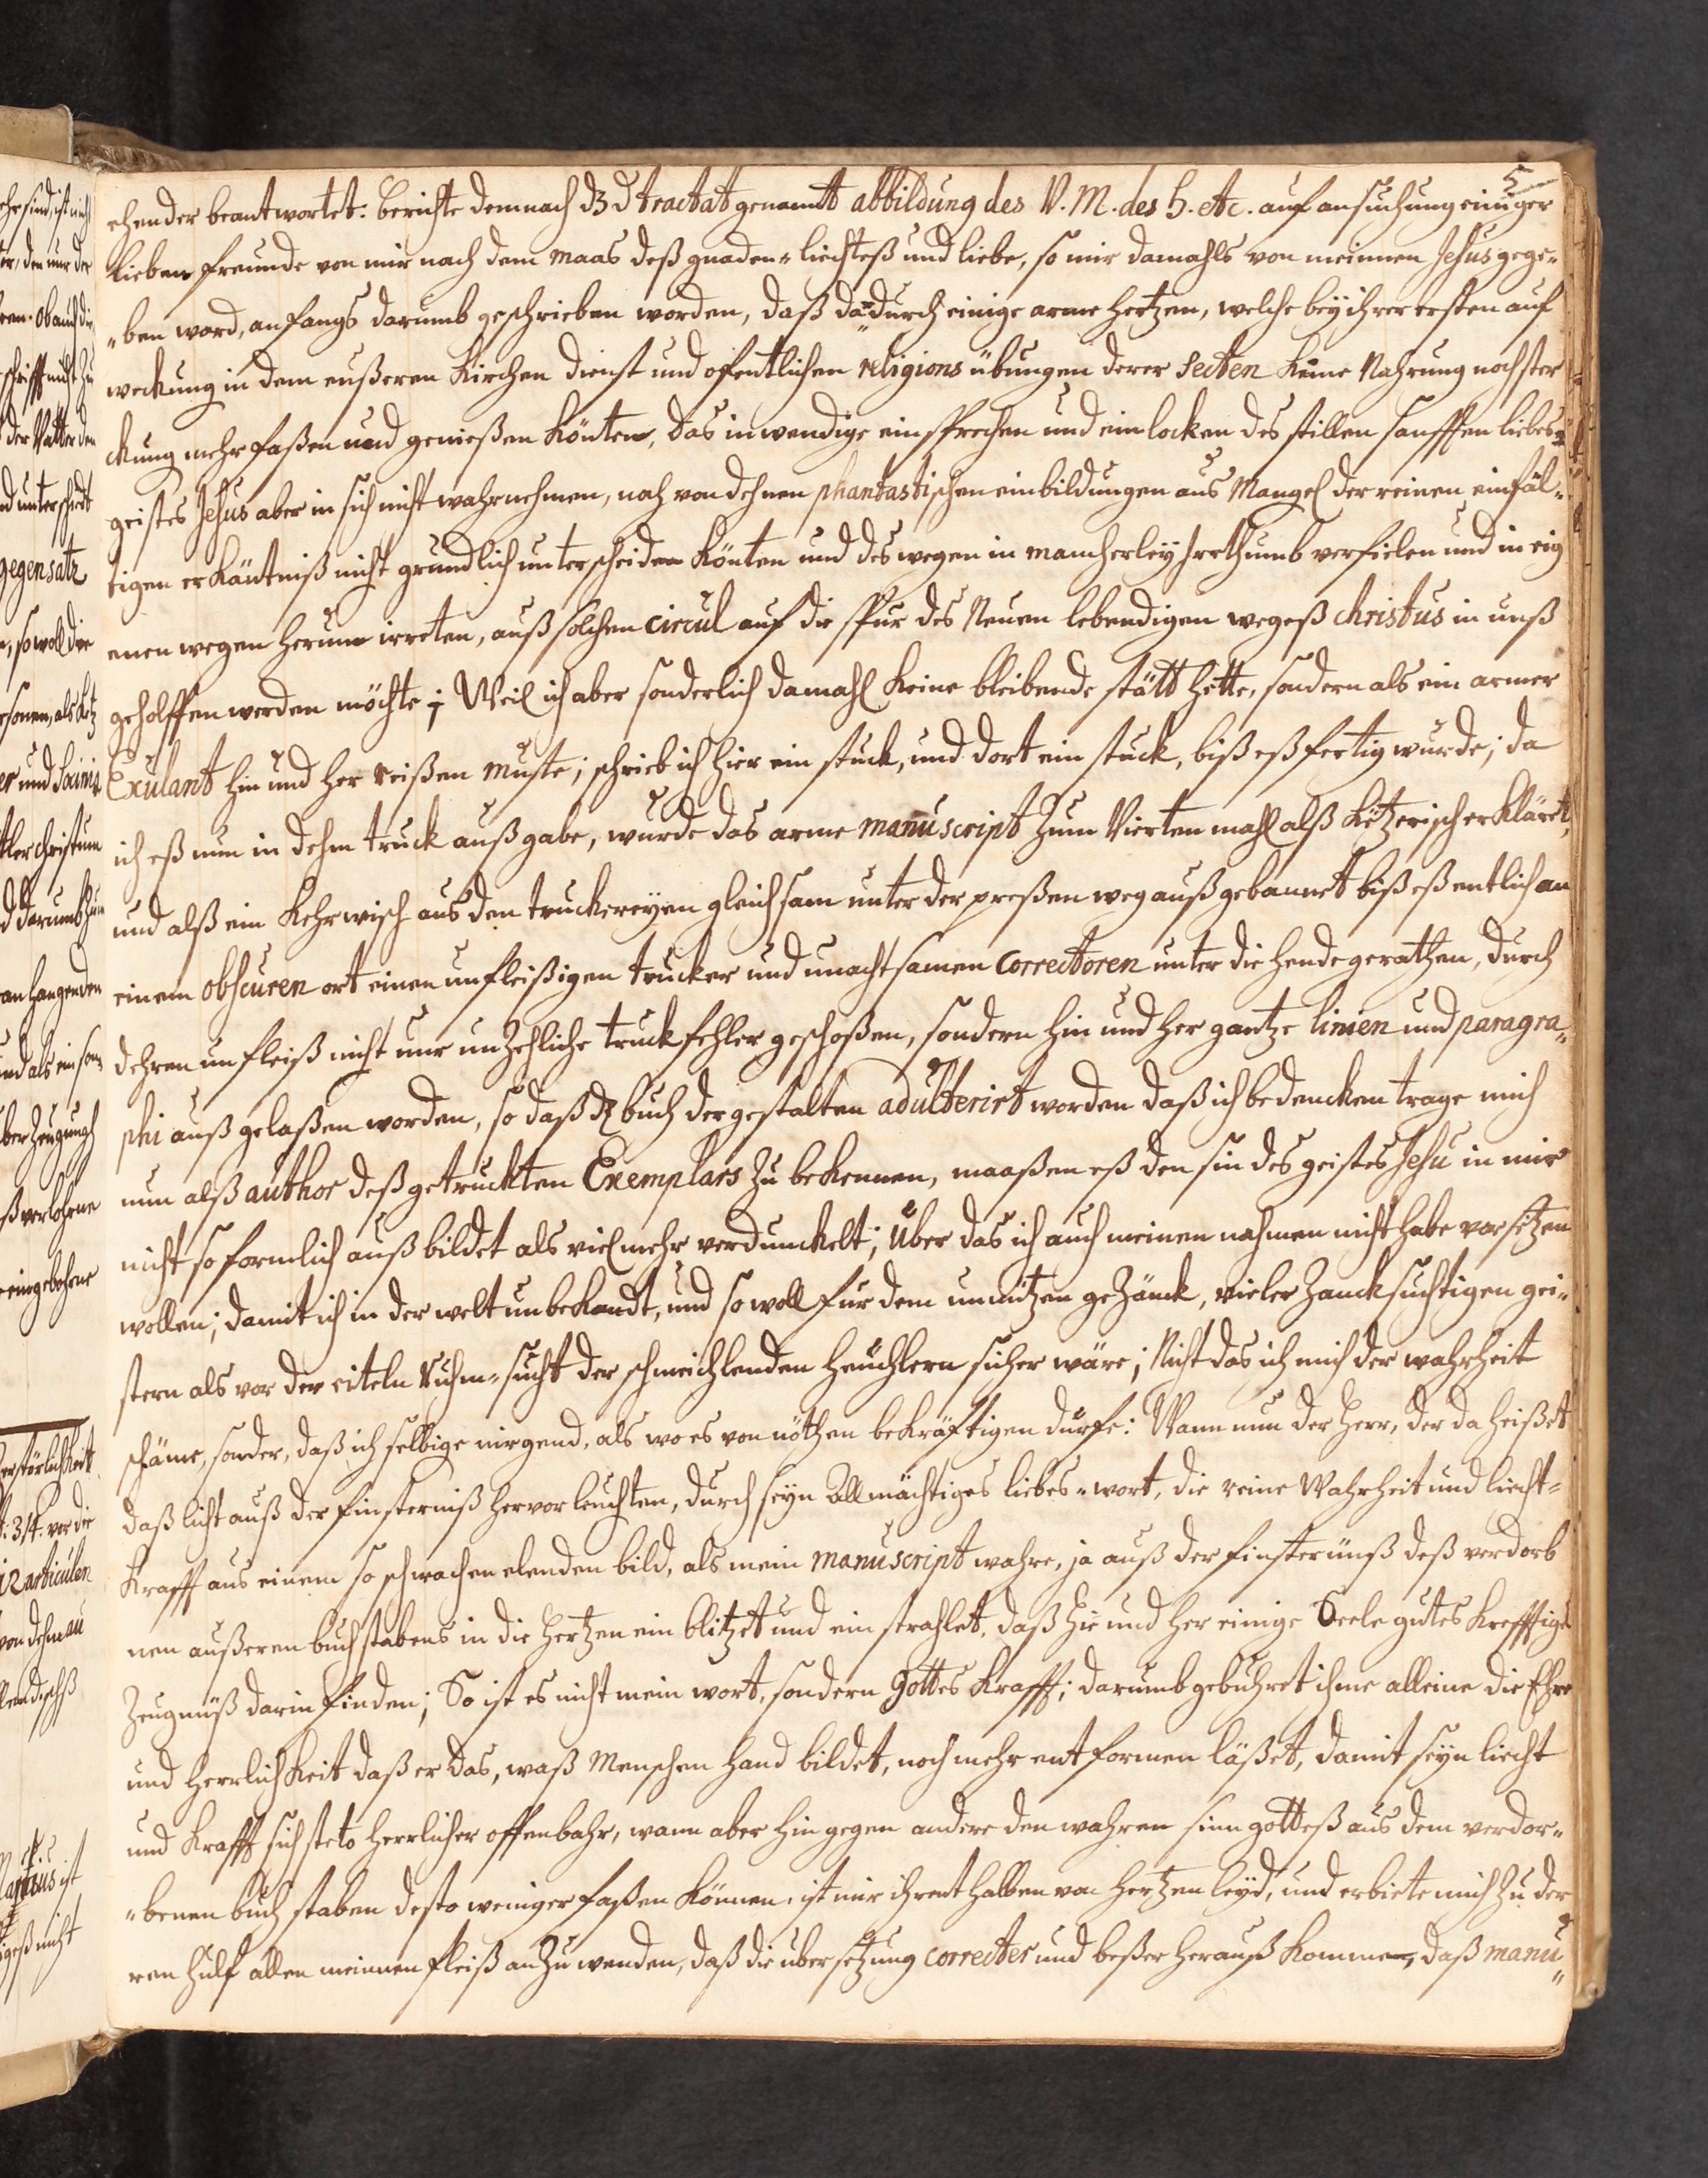 5
ehender beantwortet: berichte demnach dz d tractat genantt abbildung des V. M. des H. etc. auf ansuchung einiger
lieben freunde von mir nach dem maas deß gnaden-liechteß und liebe, so mir damahls von meinen Jesus gege-
-ben ward, anfangs darumb geschrieben worden, daß da-durch einige arme hertzen, welche bey ihrer ersten auf
weckung in dem eußeren Kirchen dienst und ofentlichen religions übungen derer Secten keine Nahrung noch ster
ckung mehr faßen und genießen könten, das inwendige einsprechen und einlocken des stillen sanfften liebes-
geistes Jesus aber in sich nicht wahrnehmen, noch von dehnen phantastischen einbildungen aus Mangel der reinen einfäl-
tigen erkäntniß nicht gründlich unterscheiden könten und deswegen in mancherley Irrthumb verfielen und in eig
enen wegen herum irreten, auß solchen circul auf die spur des Neuen lebendigen wegeß christus in unß
geholffen werden möchte; Weil ich aber sonderlich damahl keine bleibende stätt hette, sondern als ein armer
Exulant hin und her reißen muste; schrieb ich hier ein stuck, und dort ein stuck, biß eß fertig wurde; da
ich eß nun in dehm truck außgabe, wurde das arme manuscript zum Vierten mahl alß ketzerisch erkläret,
und alß ein Kehrwisch aus den truckereyen gleichsam unter der preßen weg außgebannet biß eß entlich an
einem obscuren ort einen unfleißigen trucker und unachtsamen correctoren unter die hende gerathen, durch
dehren unfleiß nicht nur unzehliche truckfehler geschoßen, sondern hin und her gantze linien und paragra-
phi auß gelaßen worden, so daß dz buch dergestalten adulterirt worden daß ich bedencken trage mich
nun alß author deß getruckten Exemplars zu bekennen, maaßen eß den sin des geistes Jesu in mir
nicht so formlich außbildet als vielmehr verdunckelt; über das ich auch meinen nahmen nicht habe vorsetzen
wollen; damit ich in der welt unbekandt, und so woll für dem unnützen gezänck, vieler zancksüchtigen gei-
stern als vor der eiteln Ruhm-sucht der schmeichlenden heüchlern sicher wäre; Nicht das ich mich der wahrheit
schäme, sonder, daß ich selbige nirgend, als wo es von nöthen bekräftigen dürfe: Wann nun der Herr, der da heißet
daß licht auß der finsterniß hervor leuchten, durch seyn allmächtiges liebes-wort, die reine Wahrheit und liecht-
krafft aus einem so schwachen elenden bild, als mein manuscript wahre, ja auß der finsternüß deß verdorb
nen außeren buchstabens in die hertzen ein blitzet und ein strahlet, daß hie und her einige Seele gutes krefftiges
zeugnüß darin finden; So ist es nicht mein wort, sondern Gottes krafft; darumb gebühret ihme alleine die Ehre
und herrlichkeit daß er das, waß Menschen hand bildet, noch mehr entformen läßet, damit seyn liecht
und krafft sich steto herrlicher offenbahr, wann aber hingegen andere den wahren sinn gotteß aus dem verdor-
-benen buchstaben desto weniger faßen können, ist mir ihrenthalben von hertzen leyd, und erbiete mich zu der
ren hülf allen meinen fleiß anzuwenden, daß die übersetzung correcter und beßer herauß komme, daß manu-